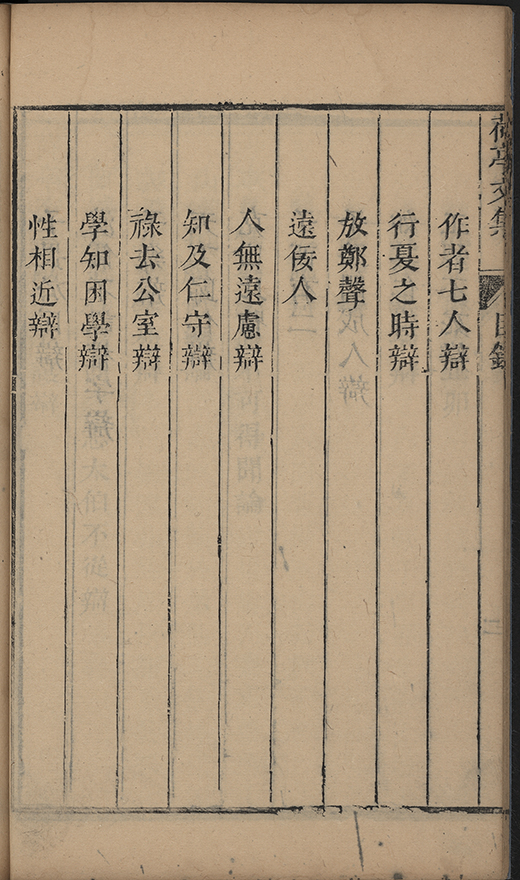 荷亭文集
目錄
作者七人辯
行夏之時辯
放鄭聲
遠佞人
人無遠慮辯
知及仁守辯
祿去公室辯
學知困學辯
性相近辯